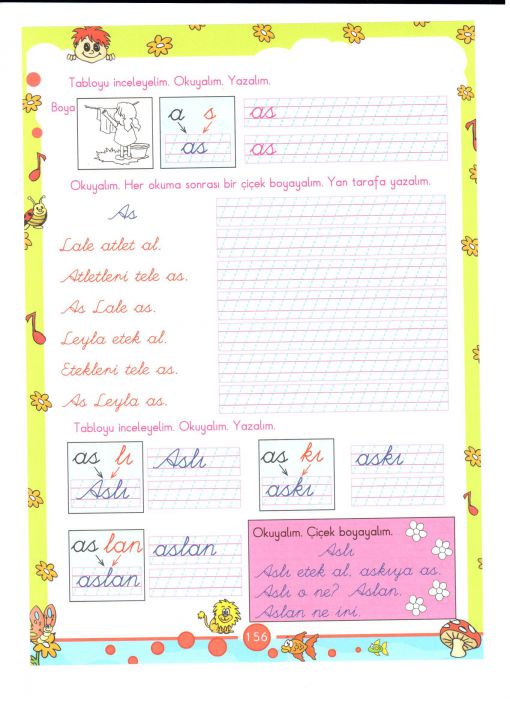 Tabloyu inceleyelim. Okuyalım. Yazalım.
Boya
a s as
as
as
Okuyalım. Her okuma sonrası bir çiçek boyayalım. Yan tarafa yazalım.
As
Lale atlet al.
Atletleni tele as.
As Lale as.
Leyla etek al.
Etekleni tele as.
As Leyla as.
Tabloyu inceleyelim. Okuyalım. Yazalım.
as lı Aslı
Aslı
as kı askı
askı
as lan aslan
aslan
Okuyalım. Çiçek boyayalım.
Aslı
Aslı etek al, askıya as.
Aslı o ne? Aslan.
Aslan ne ini.
156